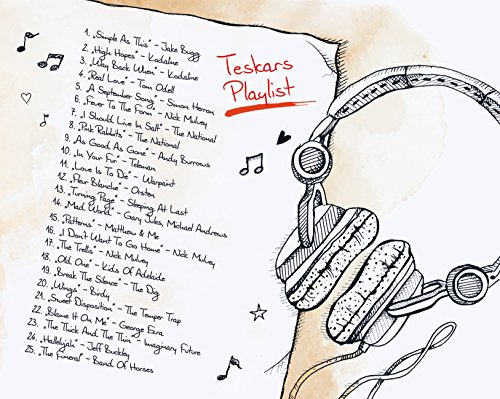 Teskars
Playlist
1. „Simple As This" - Jake Bugg
2. „High Hopes" - Kodaline
3. „Way Back When" - Kodaline
4. „Real Love" - Tom Odell
5. „A September Song" - Simon Herron
6. „Fever To The Form" - Nick Mulvey
7. „I Should Live In Salt" - The National
8. „Pink Rabbits" - The National
9. „As Good As Gone" - Andy Burrows
10. „In Your Fur" -
11. „Love Is To Die" - Warpaint
12. „Fleur Blanche" - Orsten
13. „Turning Page" - Sleeping At Last
14. „Mad World" - Gary Jules, Michael Andrews
15. „Patterns" - Matthew & Me
16. „I Don't Want To Go Home" - Nick Mulvey
17. „The Trellis" - Nick Mulvey
18. „Old One" - Kids Of Adelaide
19. „Break The Silence" - The Dig
20. „Wings" - Birdy
21. „Sweet Disposition" - The Temper Trap
22. „Blame It On Me" - George Ezra
23. „The Thick And The Thin" - Imaginary Future
24. „Hallelujah" - Jeff Buckley
25. „The Funeral" - Band Of Horses